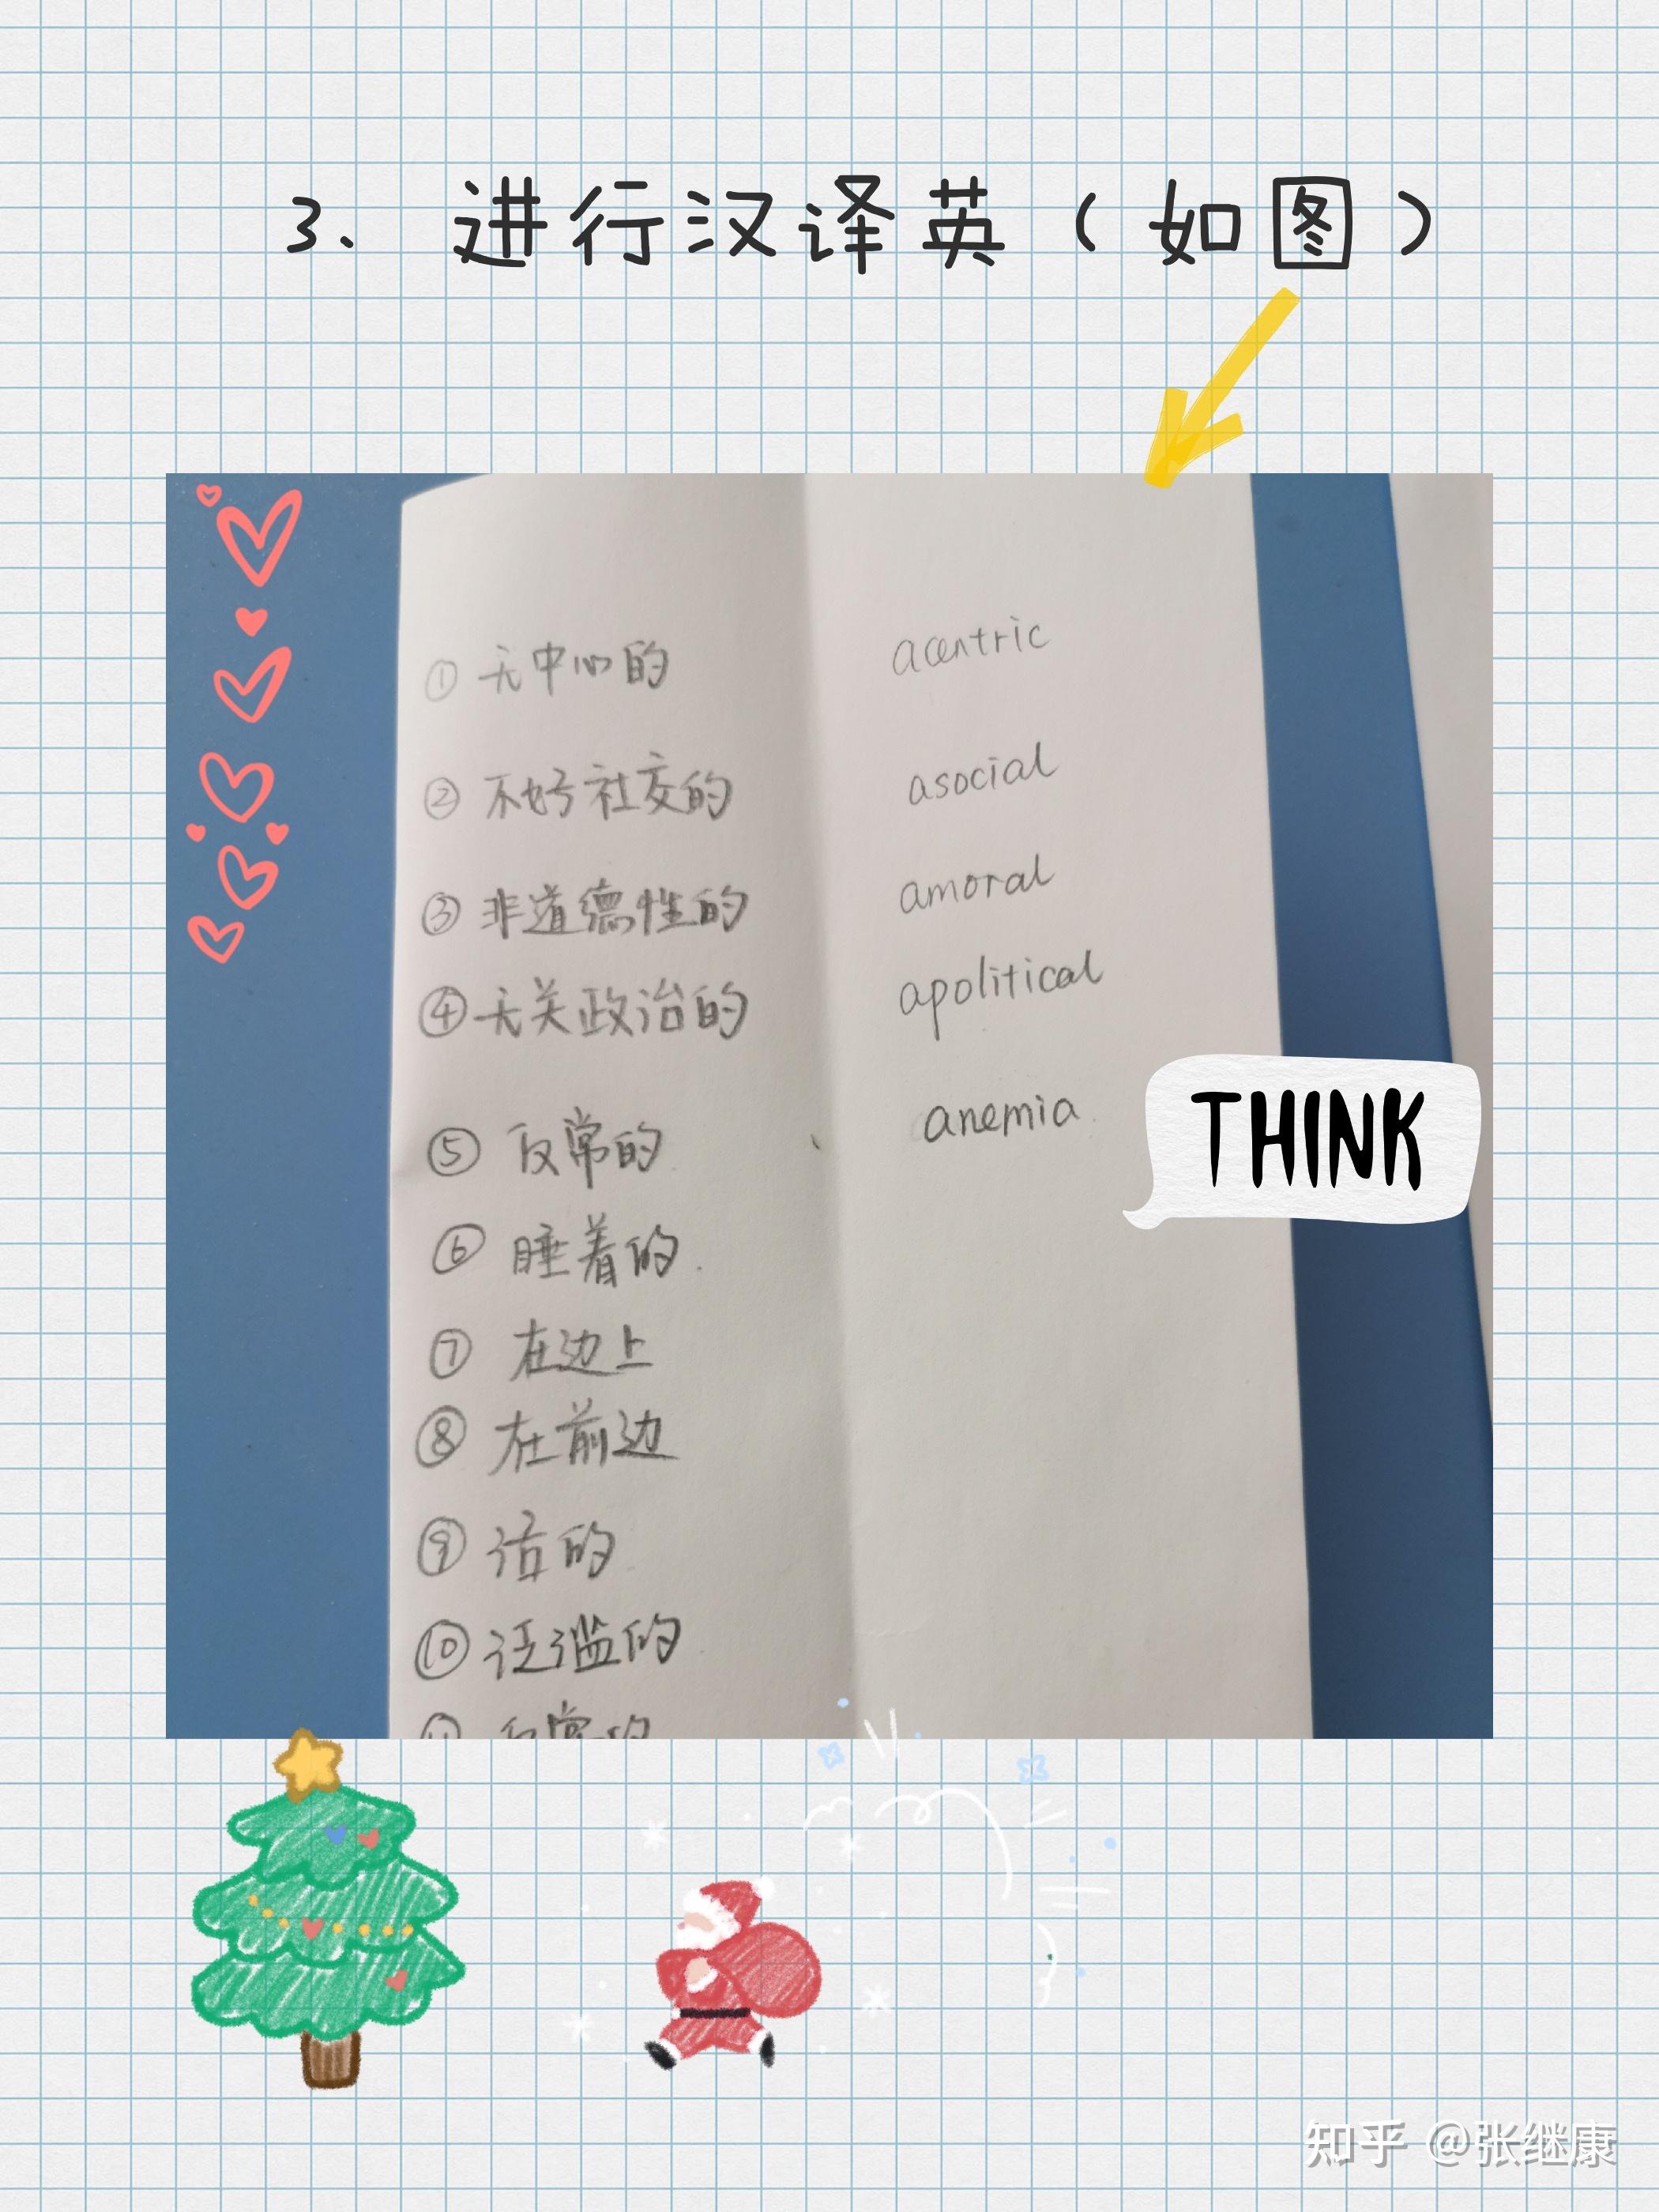 3. 进行汉译英（如图）
① 无中心的 acentric
② 不好社交的 asocial
③ 非道德性的 amoral
④ 无关政治的 apolitical
⑤ 反常的 anemia
THINK
⑥ 睡着的.
⑦ 在边上
⑧ 在前边
⑨ 活的
⑩ 泛滥的
知乎 @张继康